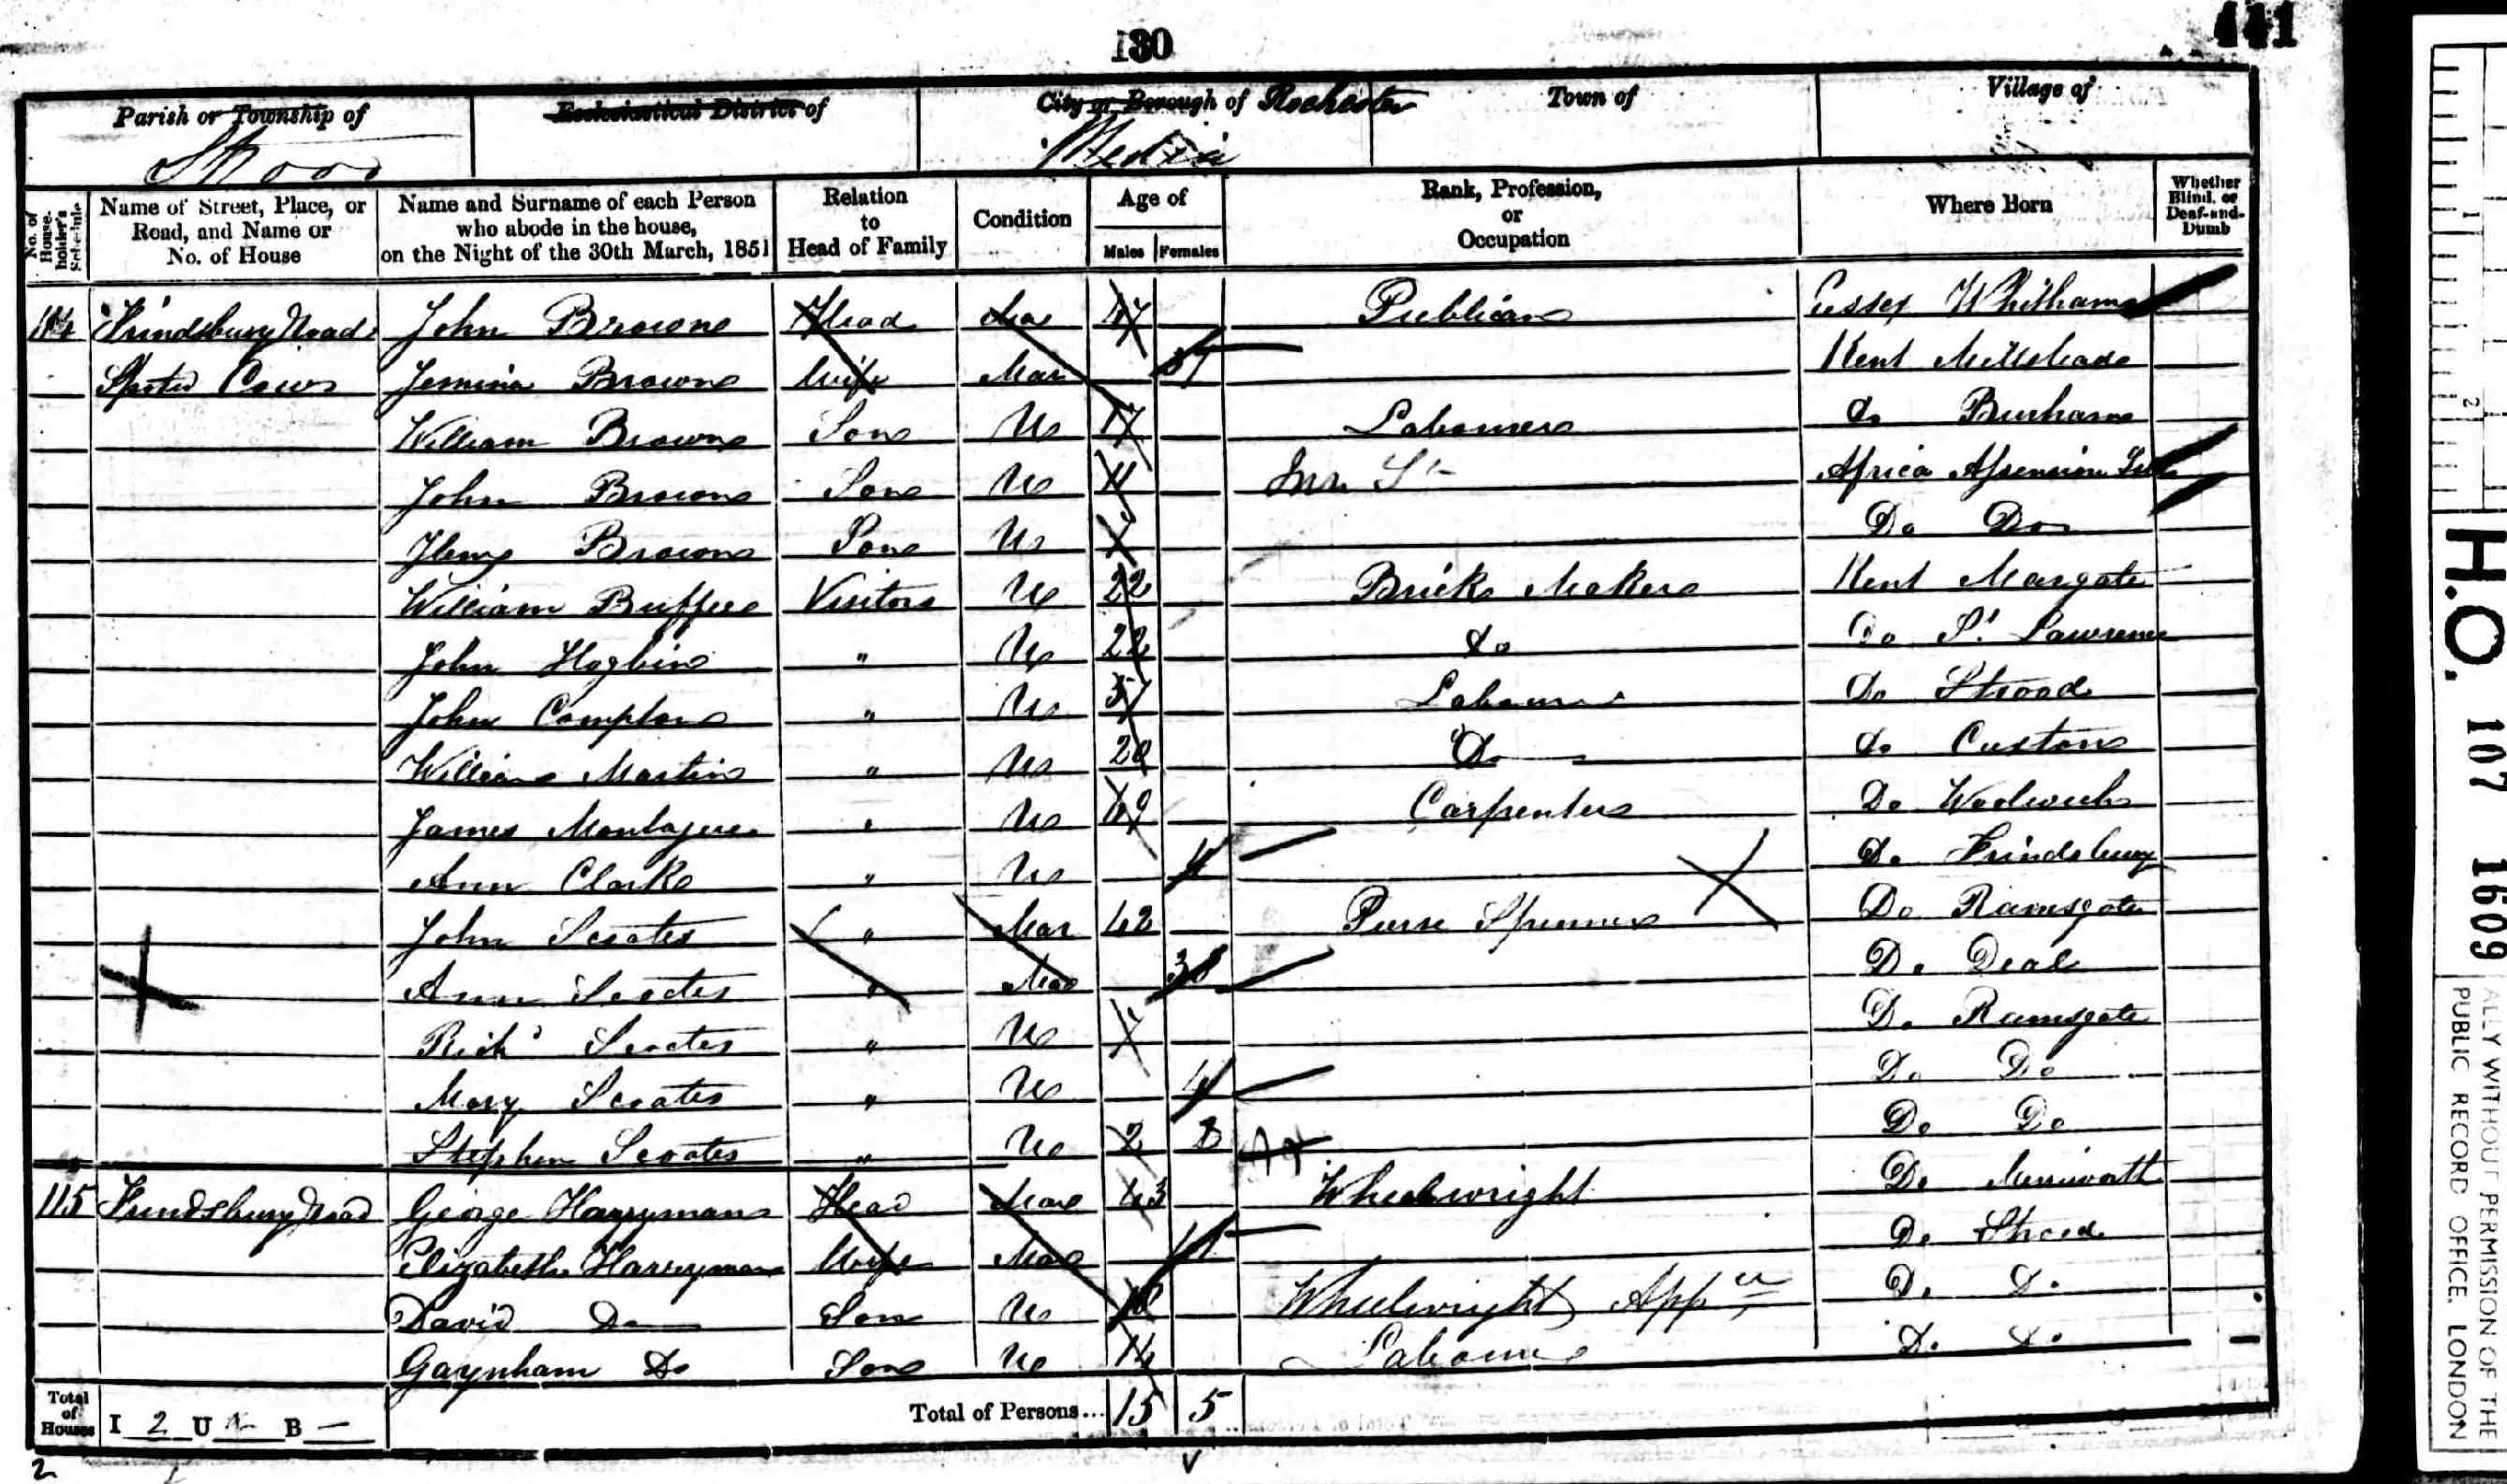 130
441
Parish or Township of
Ecclesiastical District of
City or Borough of Rochester
Town of
Village of
Strood
No. of House-holder's Schedule
Name of Street, Place, or Road, and Name or No. of House
Name and Surname of each Person who abode in the house, on the Night of the 30th March, 1851
Relation to Head of Family
Condition
Age of
Males Females
Rank, Profession, or Occupation
Where Born
Whether Blind, or Deaf-and-Dumb
114 Frindsbury Road John Brown Head Mar 47 Publican Essex Whitham
Spotted Cow Jemima Brown Wife Mar 37 Kent Milsted
William Brown Son U 17 Labourer do Burham
John Brown Son U 11 Africa Assension
Henry Brown Son U Do Do
William Buffee Visitor U 22 Brick Maker Kent Margate
John Hogbin " U 22 do Do St Lawrence
John Compton " U 37 Labourer Do Strood
William Martin " U 20 Do do Cuxton
James Montague " U Carpenter Do Woolwich
Ann Clark " U Do Frindsbury
John Scoates " Mar 42 Purse Do Ramsgate
Ann Scoates " Mar 38 Do Deal
Richd Scoates " U 7 Do Ramsgate
Mary Scoates " U 4 Do Do
Stephen Scoates " U 2 Do Do
115 Frindsbury Road George Harryman Head Mar 43 Wheelwright Do
Elizabeth Harryman Wife Mar Do Strood
David Do Son U Wheelwright App Do Do
Gaynham Do Son U Labourer Do Do
Total of Houses I 2 U B —
Total of Persons... 15 5
H.O. 107 1609
ALLY WITHOUT PERMISSION OF THE
PUBLIC RECORD OFFICE, LONDON
1
2